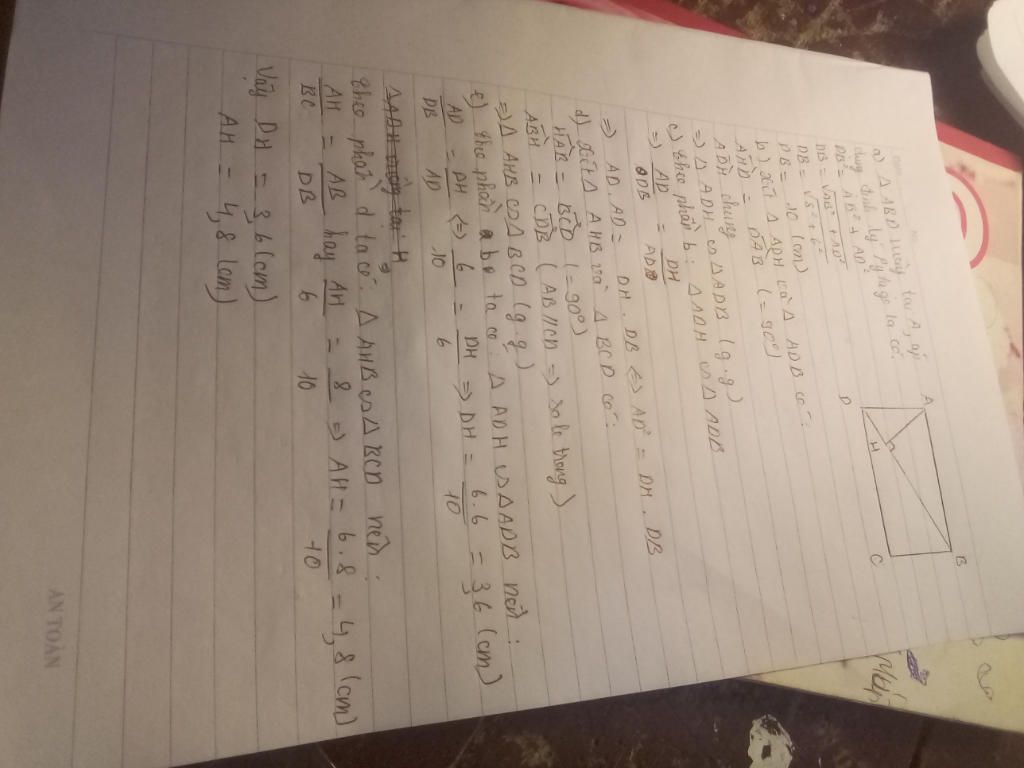 a) Δ ABD vuông tại A, áp
dụng định lý Pytago ta có:
DB² = AB² + AD²
DB = √AB² + AD²
DB = √8² + 6²
DB = 10 (cm)
b) Xét Δ ADH và Δ ADB có:
AHD = DAB (= 90°)
ADH chung
=> Δ ADH ∽ Δ ADB (g.g)
c) theo phần b: Δ ADH ∽ Δ ADB
=> AD/DB = DH/AD
=> AD.AD = DH.DB <=> AD² = DH.DB
d) Xét Δ AHB và Δ BCD có:
HAB = BCD (= 90°)
ABH = CDB (AB//CD => so le trong)
=> Δ AHB ∽ Δ BCD (g.g)
e) theo phần b, ta có: Δ ADH ∽ Δ ADB nên:
AD/DB = DH/AD <=> 6/10 = DH/6 => DH = 6.6/10 = 3,6 (cm)
theo phần d ta có: Δ AHB ∽ Δ BCD nên:
AH/BC = AB/DB hay AH/6 = 8/10 => AH = 6.8/10 = 4,8 (cm)
Vậy DH = 3,6 (cm)
AH = 4,8 (cm)
A
B
D
H
C
AN TOÀN